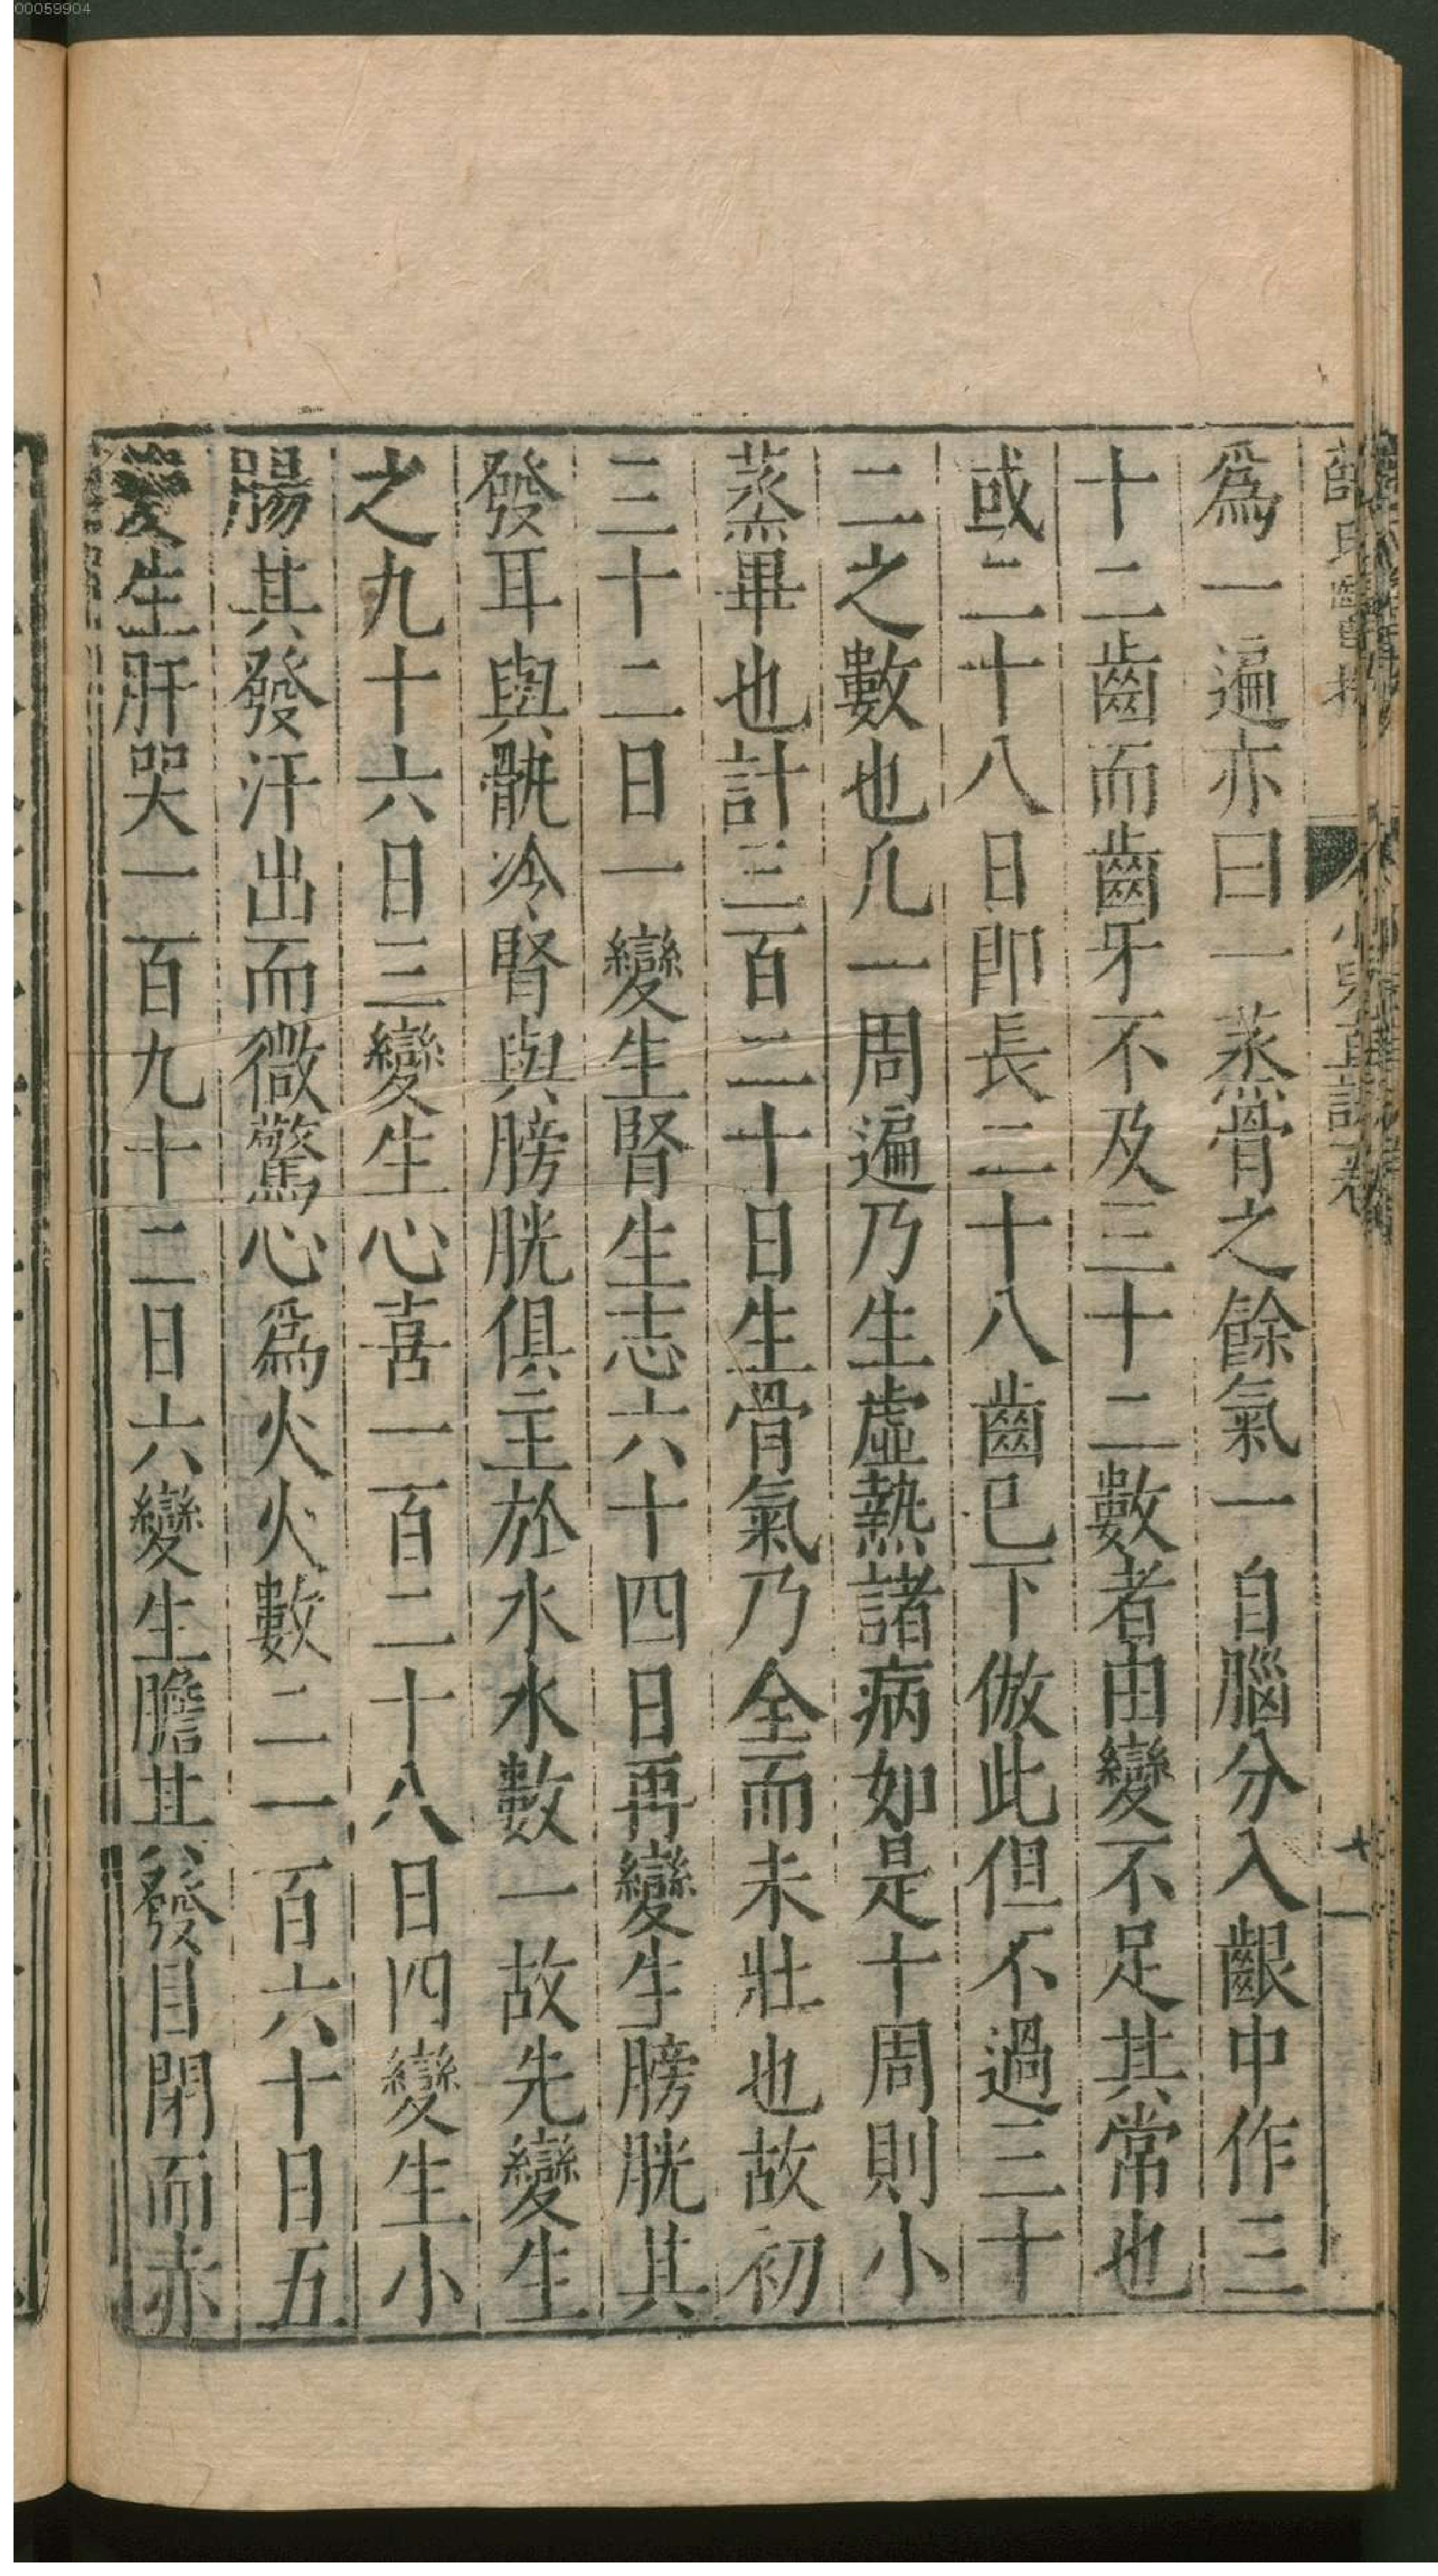 00059904
爲一遍亦曰一蒸骨之餘氣一自腦分入齦中作三
十二齒而齒牙不及三十二數者由變不足其常也
或二十八日即長二十八齒已下倣此但不過三十
二之數也凡一周遍乃生虛熱諸病如是十周則小
蒸畢也計三百二十日生骨氣乃全而未壯也故初
三十二日一變生腎生志六十四日再變生膀胱其
發耳與骩冷腎與膀胱俱主於水水數一故先變生
之九十六日三變生心喜一百二十八日四變生小
腸其發汗出而微驚心爲火火數二一百六十日五
變生肝哭一百九十二日六變生膽其發目閉而赤